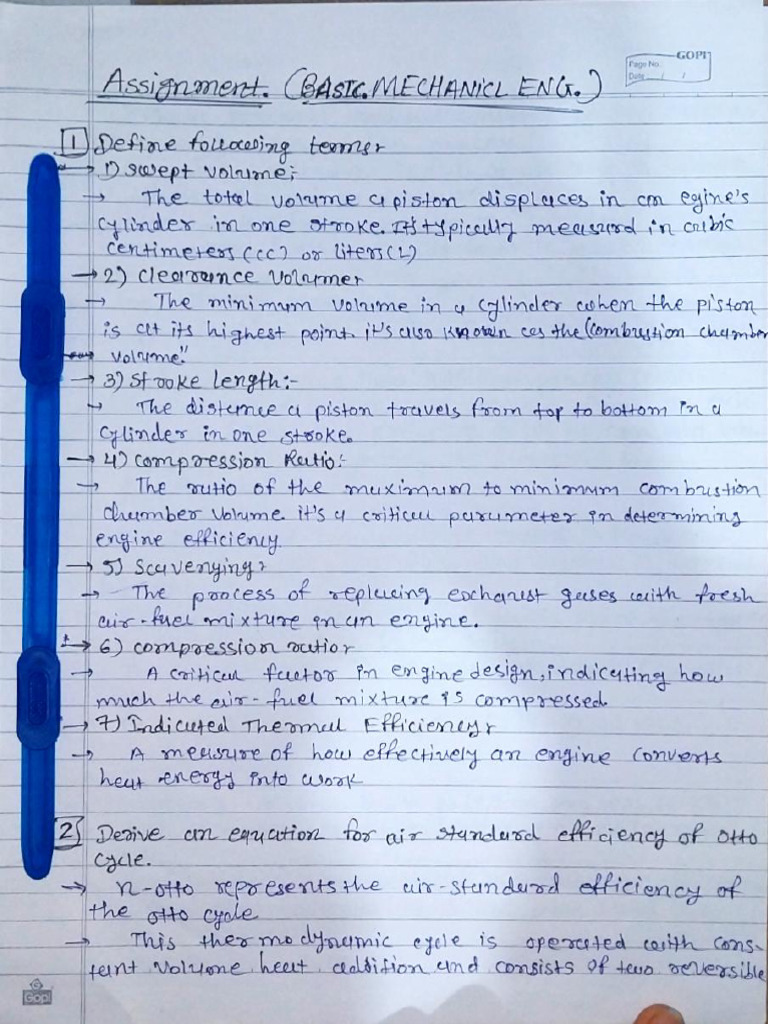 GOPI
Page No.
Date / /
Assignment. (BASIC. MECHANICL ENG.)
1 Define following terms:
→ 1) swept volume:
→ The total volume a piston displaces in an egine's
cylinder in one stroke. It's typically measurd in cubic
centimeters (cc) or liters (L)
→ 2) clearance volume:
→ The minimum volume in a cylinder when the piston
is at its highest point. it's also known as the "combustion chamber
volume."
→ 3) stroke length:-
→ The distance a piston travels from top to bottom in a
cylinder in one stroke.
→ 4) compression Ratio:-
→ The ratio of the maximum to minimum combustion
chamber volume. it's a critical parameter in determining
engine efficiency.
→ 5) Scavenging:
→ The process of replacing exchaust gases with fresh
air-fuel mixture in an engine.
→ 6) compression ratio:
→ A critical factor in engine design, indicating how
much the air-fuel mixture is compressed.
→ 7) Indicated Thermal Efficiency:
→ A measure of how effectively an engine converts
heat energy into work
2 Derive an equation for air standard efficiency of otto
cycle.
→ n-otto represents the air-standard efficiency of
the otto cycle
→ This thermodynamic cycle is operated with cons-
tant volume heat addition and consists of two reversible
Gopi